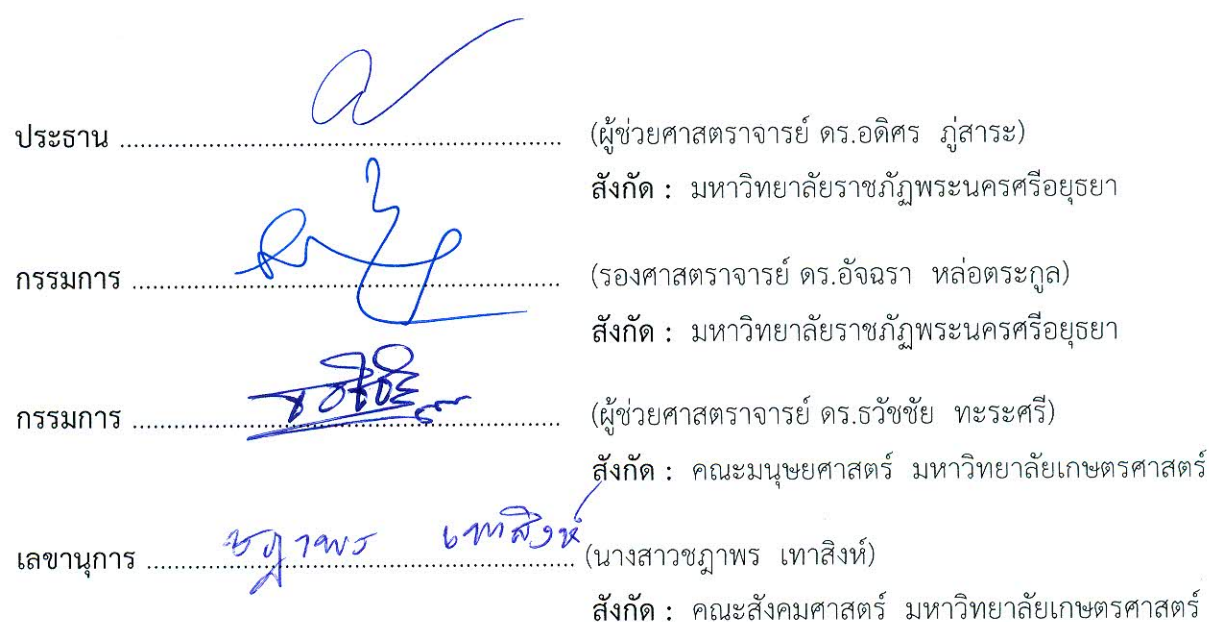 ประธาน ................................................................. (ผู้ช่วยศาสตราจารย์ ดร.อดิศร ภู่สาระ)
สังกัด : มหาวิทยาลัยราชภัฏพระนครศรีอยุธยา
กรรมการ ................................................................. (รองศาสตราจารย์ ดร.อัจฉรา หล่อตระกูล)
สังกัด : มหาวิทยาลัยราชภัฏพระนครศรีอยุธยา
กรรมการ ................................................................. (ผู้ช่วยศาสตราจารย์ ดร.ธวัชชัย ทะระศรี)
สังกัด : คณะมนุษยศาสตร์ มหาวิทยาลัยเกษตรศาสตร์
ชฎาพร เทาสิงห์
เลขานุการ ................................................................. (นางสาวชฎาพร เทาสิงห์)
สังกัด : คณะสังคมศาสตร์ มหาวิทยาลัยเกษตรศาสตร์